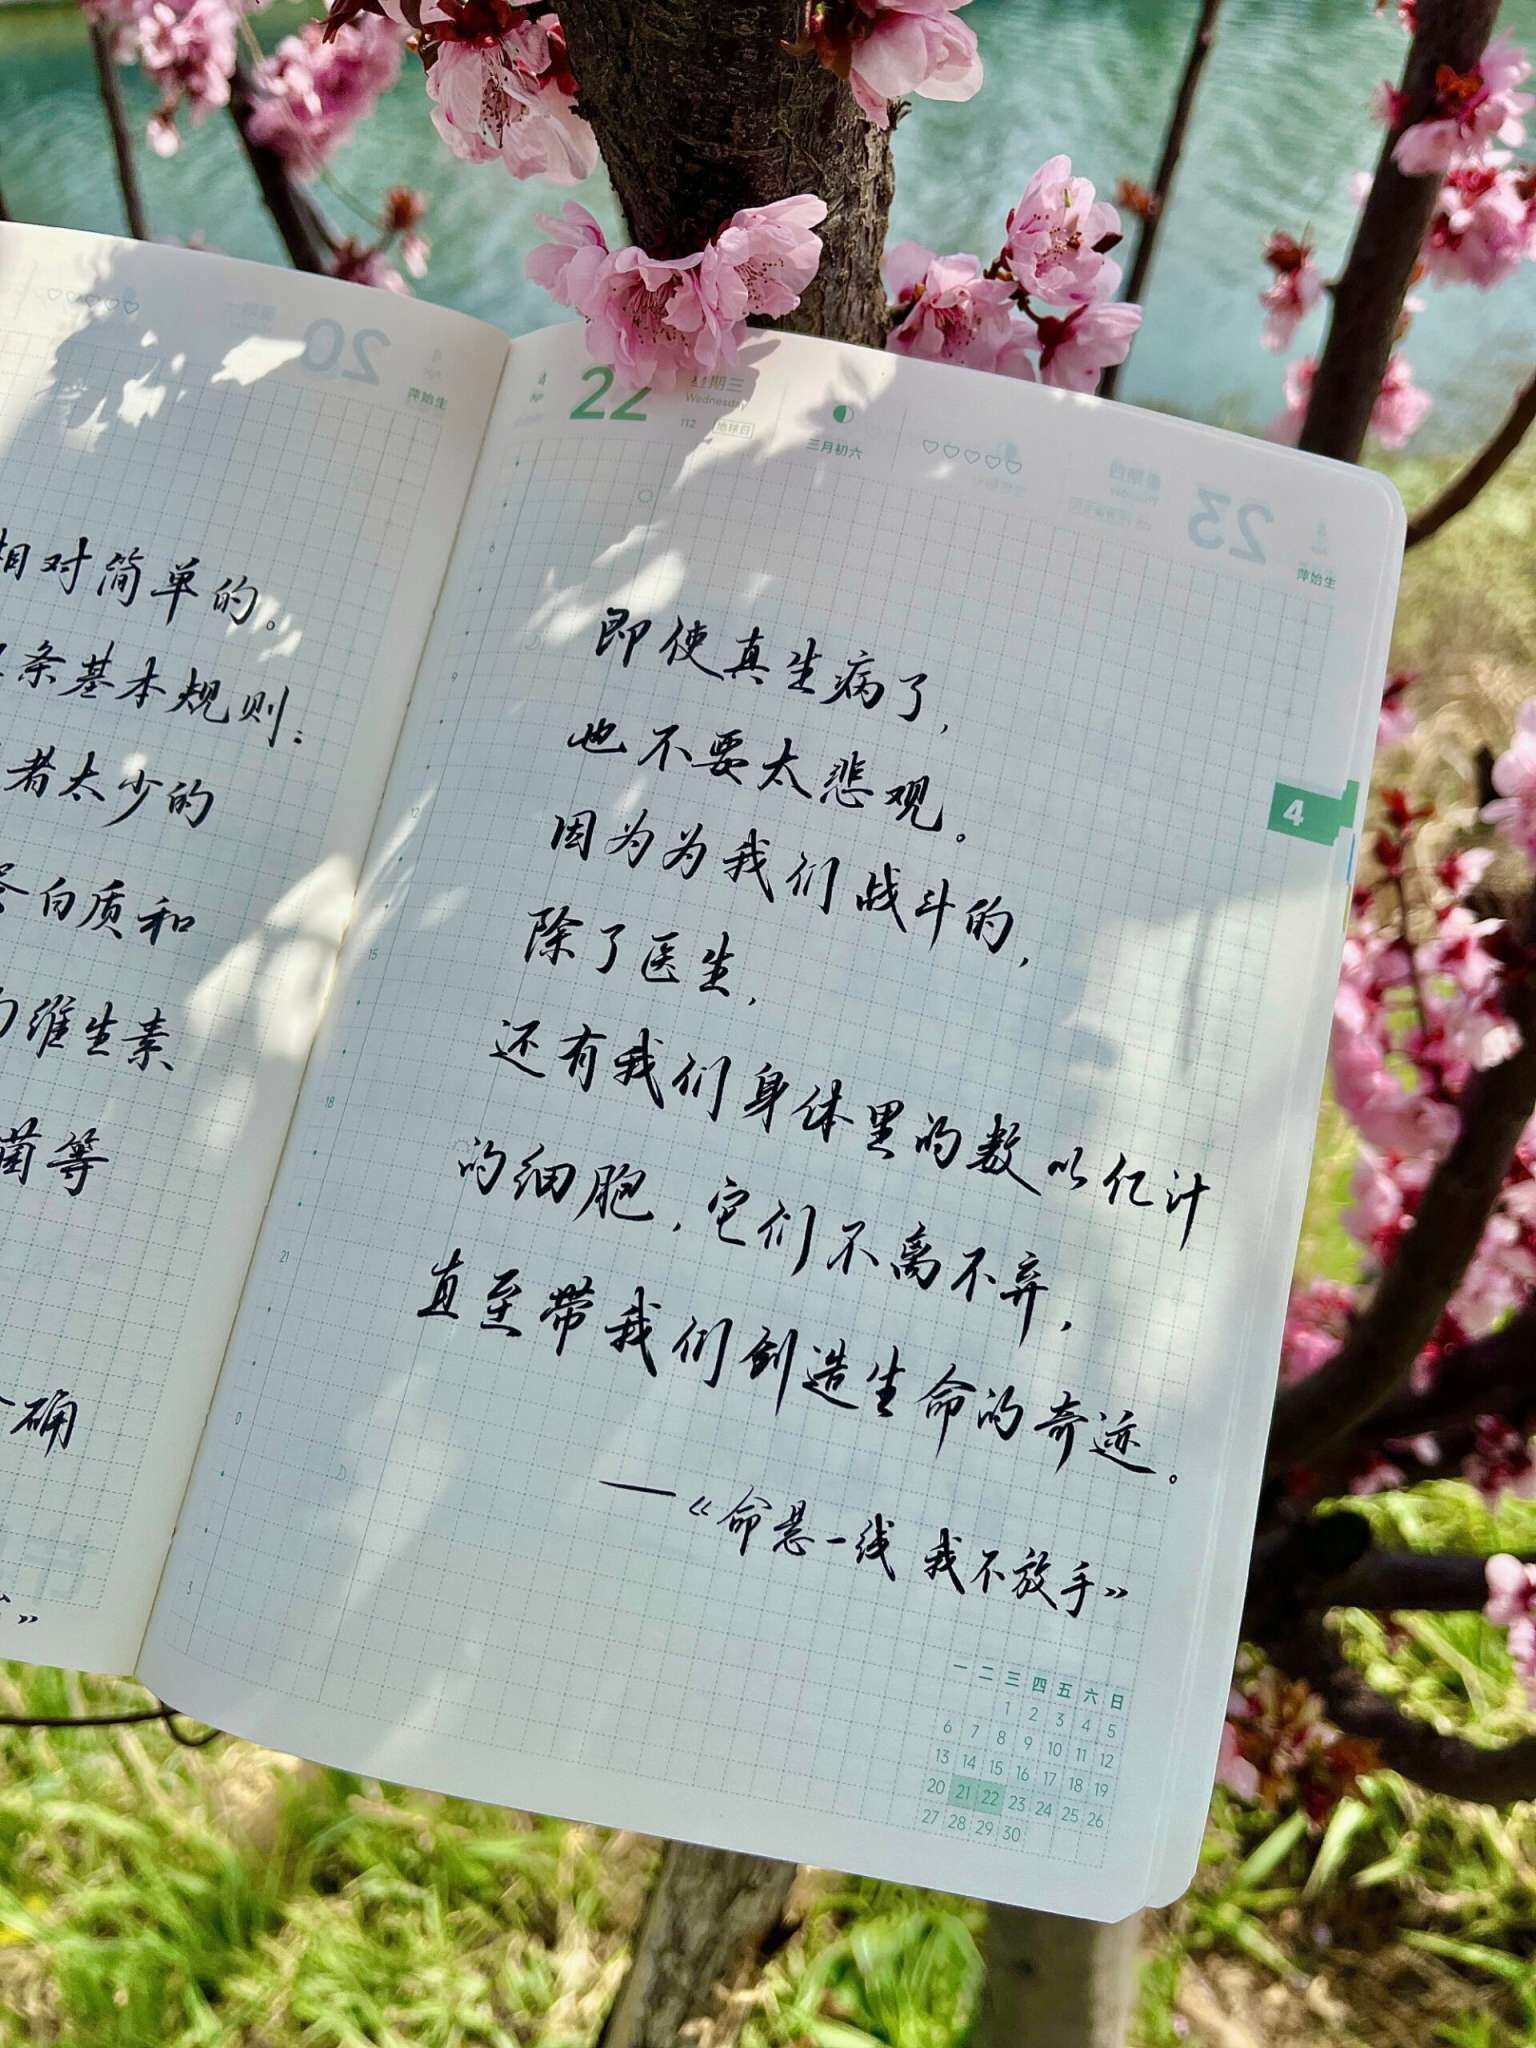 相对简单的。
条基本规则:
者太少的
白质和
维生素
菌等
确
»
20
萍始生
22
星期三
Wednesday
112 地球日
三月初六
即使真生病了,
也不要太悲观。
因为为我们战斗的,
除了医生,
还有我们身体里的数以亿计
的细胞,它们不离不弃,
直至带我们创造生命的奇迹。
—«命悬一线 我不放手»
6
9
12
15
18
21
0
3
4
23
萍始生
一 二 三 四 五 六 日
1 2 3 4 5
6 7 8 9 10 11 12
13 14 15 16 17 18 19
20 21 22 23 24 25 26
27 28 29 30